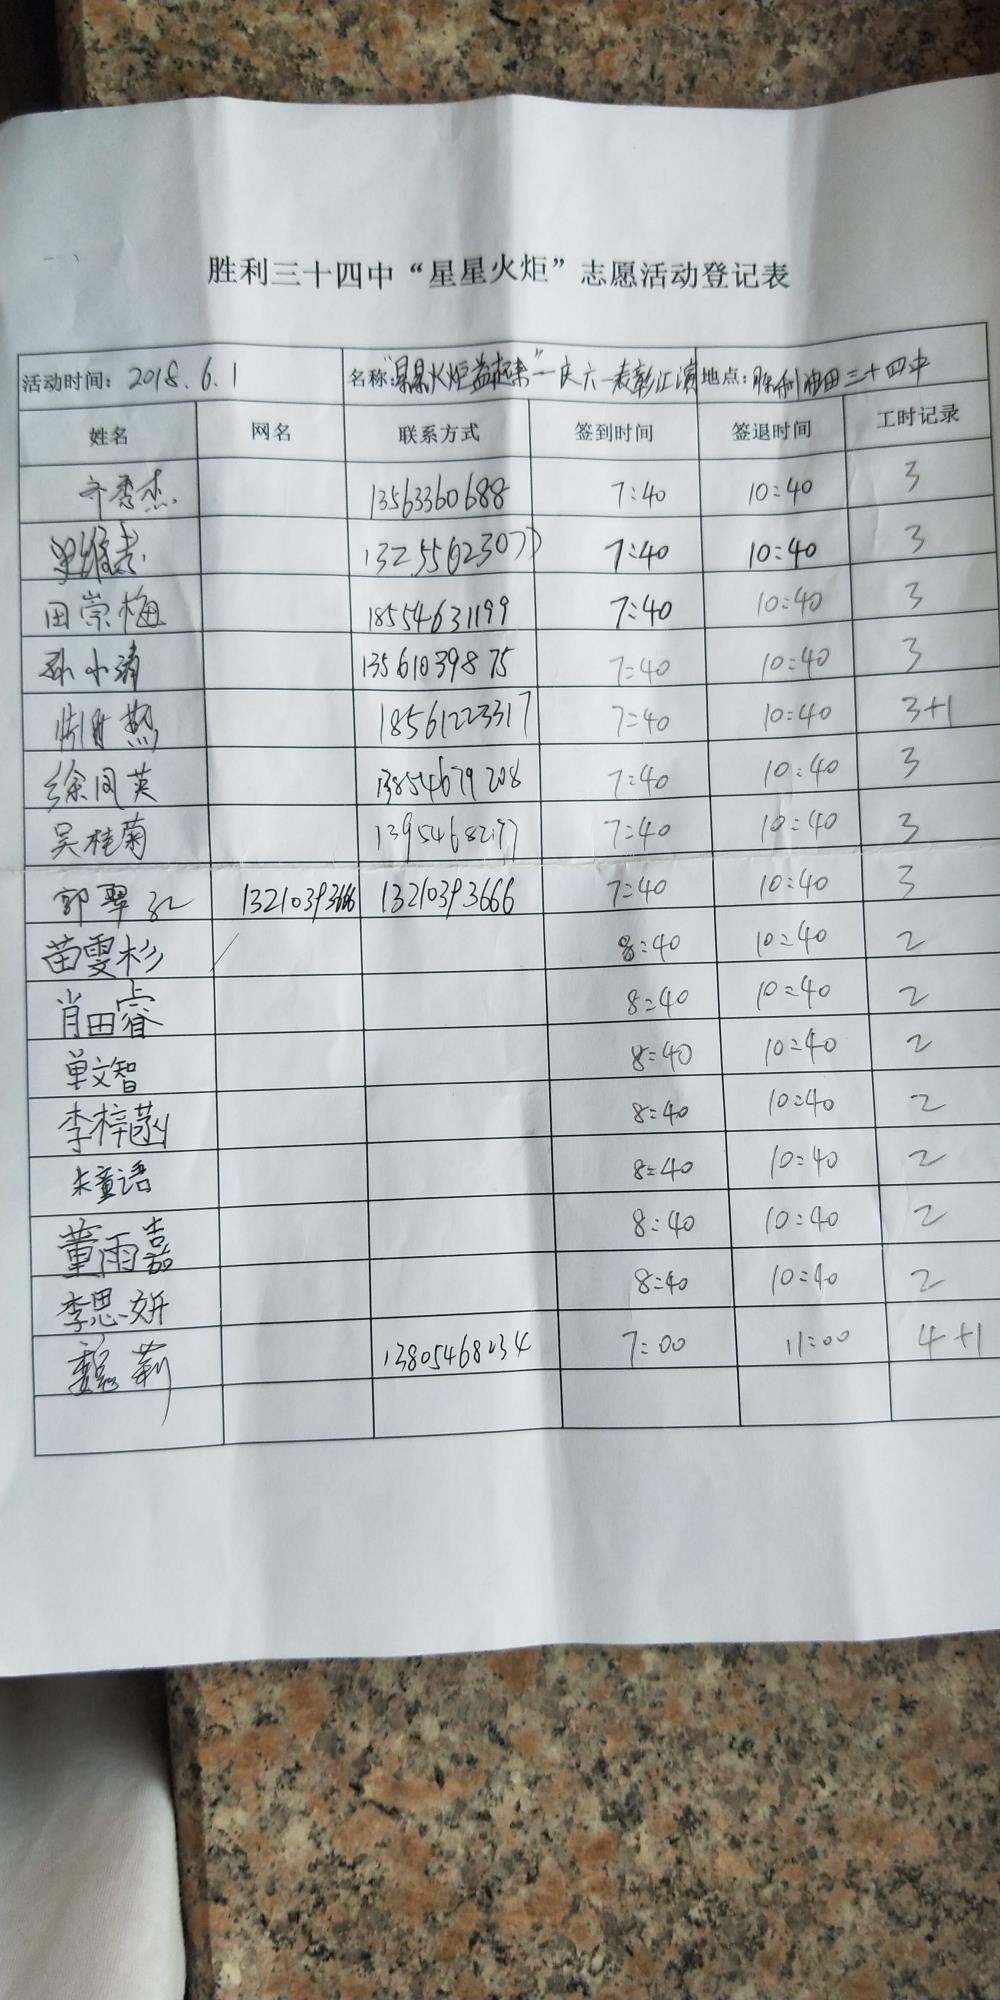 胜利三十四中“星星火炬”志愿活动登记表
活动时间：2018.6.1 名称：“星星火炬益起来”一庆六一表彰汇演 地点：胜利油田三十四中
姓名 网名 联系方式 签到时间 签退时间 工时记录
齐秀杰 13563360688 7:40 10:40 3
7:40 10:40 3
田崇梅 18554631199 7:40 10:40 3
孙小清 13561039875 7:40 10:40 3
18561223317 7:40 10:40 3+1
徐凤英 13854679208 7:40 10:40 3
吴桂菊 7:40 10:40 3
郭翠红 13210393666 13210393666 7:40 10:40 3
苗雯杉 8:40 10:40 2
肖田睿 8:40 10:40 2
单文智 8:40 10:40 2
李梓菡 8:40 10:40 2
朱童语 8:40 10:40 2
董雨嘉 8:40 10:40 2
李思妍 8:40 10:40 2
魏莉 13805468234 7:00 11:00 4+1